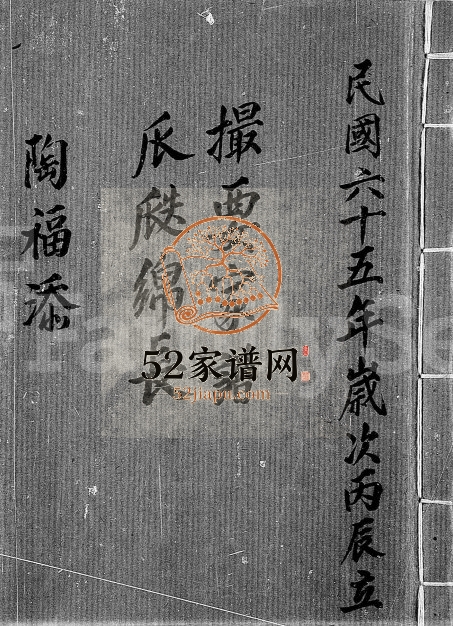 民國六十五年歲次丙辰立
撮要家譜
瓜瓞綿長
陶福添
52家谱网
52jiapu.com